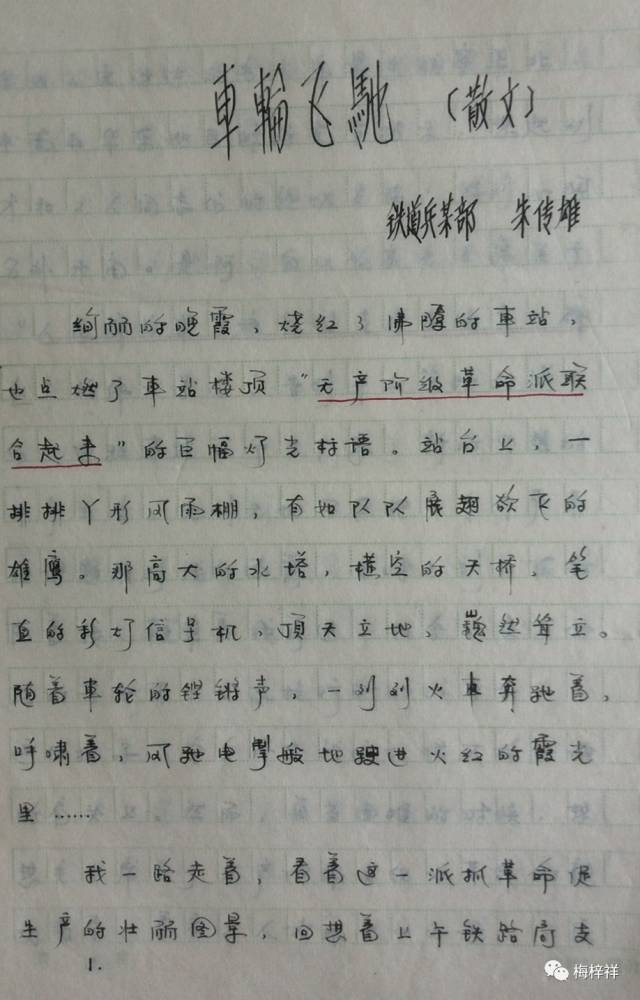 車輪飞馳（散文）
铁道兵某部 朱传雄
绚丽的晚霞，烧红了沸腾的車站，
也点燃了車站楼顶“无产阶级革命派联
合起来”的巨幅灯光标语。站台上，一
排排丫形风雨棚，有如队队展翅欲飞的
雄鹰。那高大的水塔，横空的天桥，笔
直的彩灯信号机，顶天立地，巍然耸立。
随着車轮的铿锵声，一列列火車奔驰着，
呼啸着，风驰电掣般地駛进火红的霞光
里……
我一路走着，看着这一派抓革命促
生产的壮丽图景，回想着上午铁路局支
1.
梅梓祥